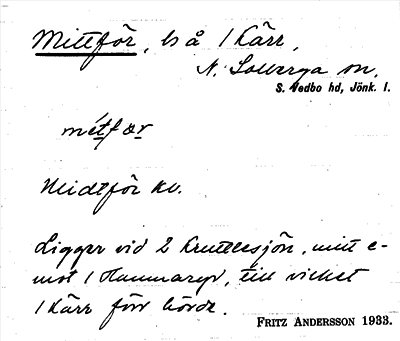 Mittför, ls å 1 Kärr,
N. Solberga sn.
S. Vedbo hd, Jönk. l.
métfær
Midtför kv.
Ligger vid 2 Knutlesjön, mitt e-
mot 1 Hammaryd, till vilket
1 Kärr förr hörde.
FRITZ ANDERSSON 1933.